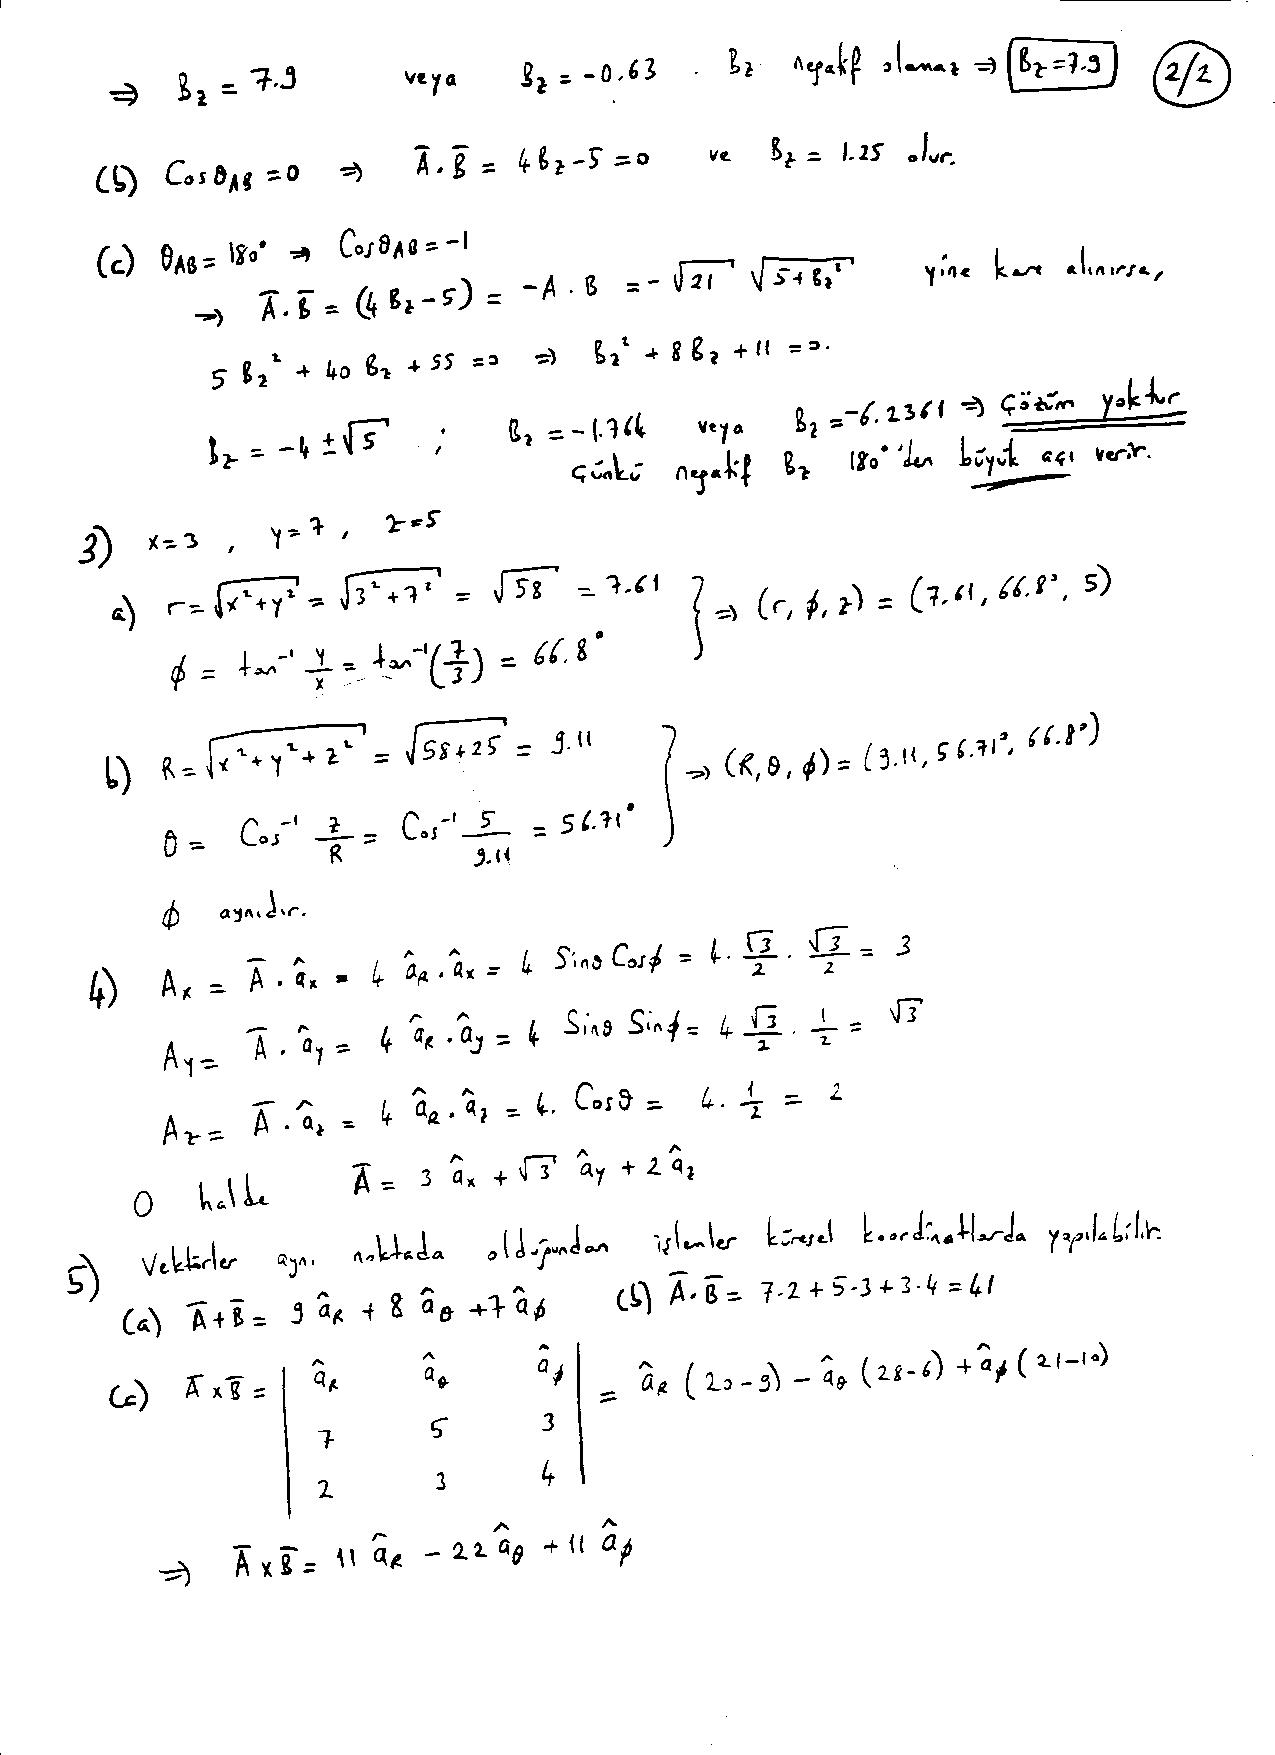 ⇒ Bz = 7.9 veya Bz = -0.63 . Bz negatif olamaz ⇒ Bz=7.9 2/2
(b) Cos θAB = 0 ⇒ A̅.B̅ = 4Bz-5 = 0 ve Bz = 1.25 olur.
(c) θAB = 180° ⇒ Cos θAB = -1
⇒ A̅.B̅ = (4Bz-5) = -A.B = -√21 √5+Bz² yine kare alınırsa,
5Bz² + 40Bz + 55 = 0 ⇒ Bz² + 8Bz + 11 = 0.
Bz = -4 ± √5 ; Bz = -1.764 veya Bz = -6.2361 ⇒ Çözüm yoktur
Çünkü negatif Bz 180°'den büyük açı verir.
3) x=3 , y=7 , z=5
a) r = √x²+y² = √3²+7² = √58 = 7.61 } ⇒ (r, ϕ, z) = (7.61, 66.8°, 5)
ϕ = tan⁻¹ y/x = tan⁻¹(7/3) = 66.8°
b) R = √x²+y²+z² = √58+25 = 9.11 } ⇒ (R, θ, ϕ) = (9.11, 56.71°, 66.8°)
θ = Cos⁻¹ z/R = Cos⁻¹ 5/9.11 = 56.71°
ϕ aynıdır.
4) Ax = A̅.âx = 4 âR.âx = 4 Sinθ Cosϕ = 4. √3/2 . √3/2 = 3
Ay = A̅.ây = 4 âR.ây = 4 Sinθ Sinϕ = 4 √3/2 . 1/2 = √3
Az = A̅.âz = 4 âR.âz = 4. Cosθ = 4. 1/2 = 2
O halde A̅ = 3 âx + √3 ây + 2 âz
5) Vektörler aynı noktada olduğundan işlemler küresel koordinatlarda yapılabilir.
(a) A̅+B̅ = 9 âR + 8 âθ + 7 âϕ (b) A̅.B̅ = 7.2 + 5.3 + 3.4 = 41
(c) A̅ x B̅ = | âR âθ âϕ | = âR (20-9) - âθ (28-6) + âϕ (21-10)
7 5 3
2 3 4
⇒ A̅ x B̅ = 11 âR - 22 âθ + 11 âϕ